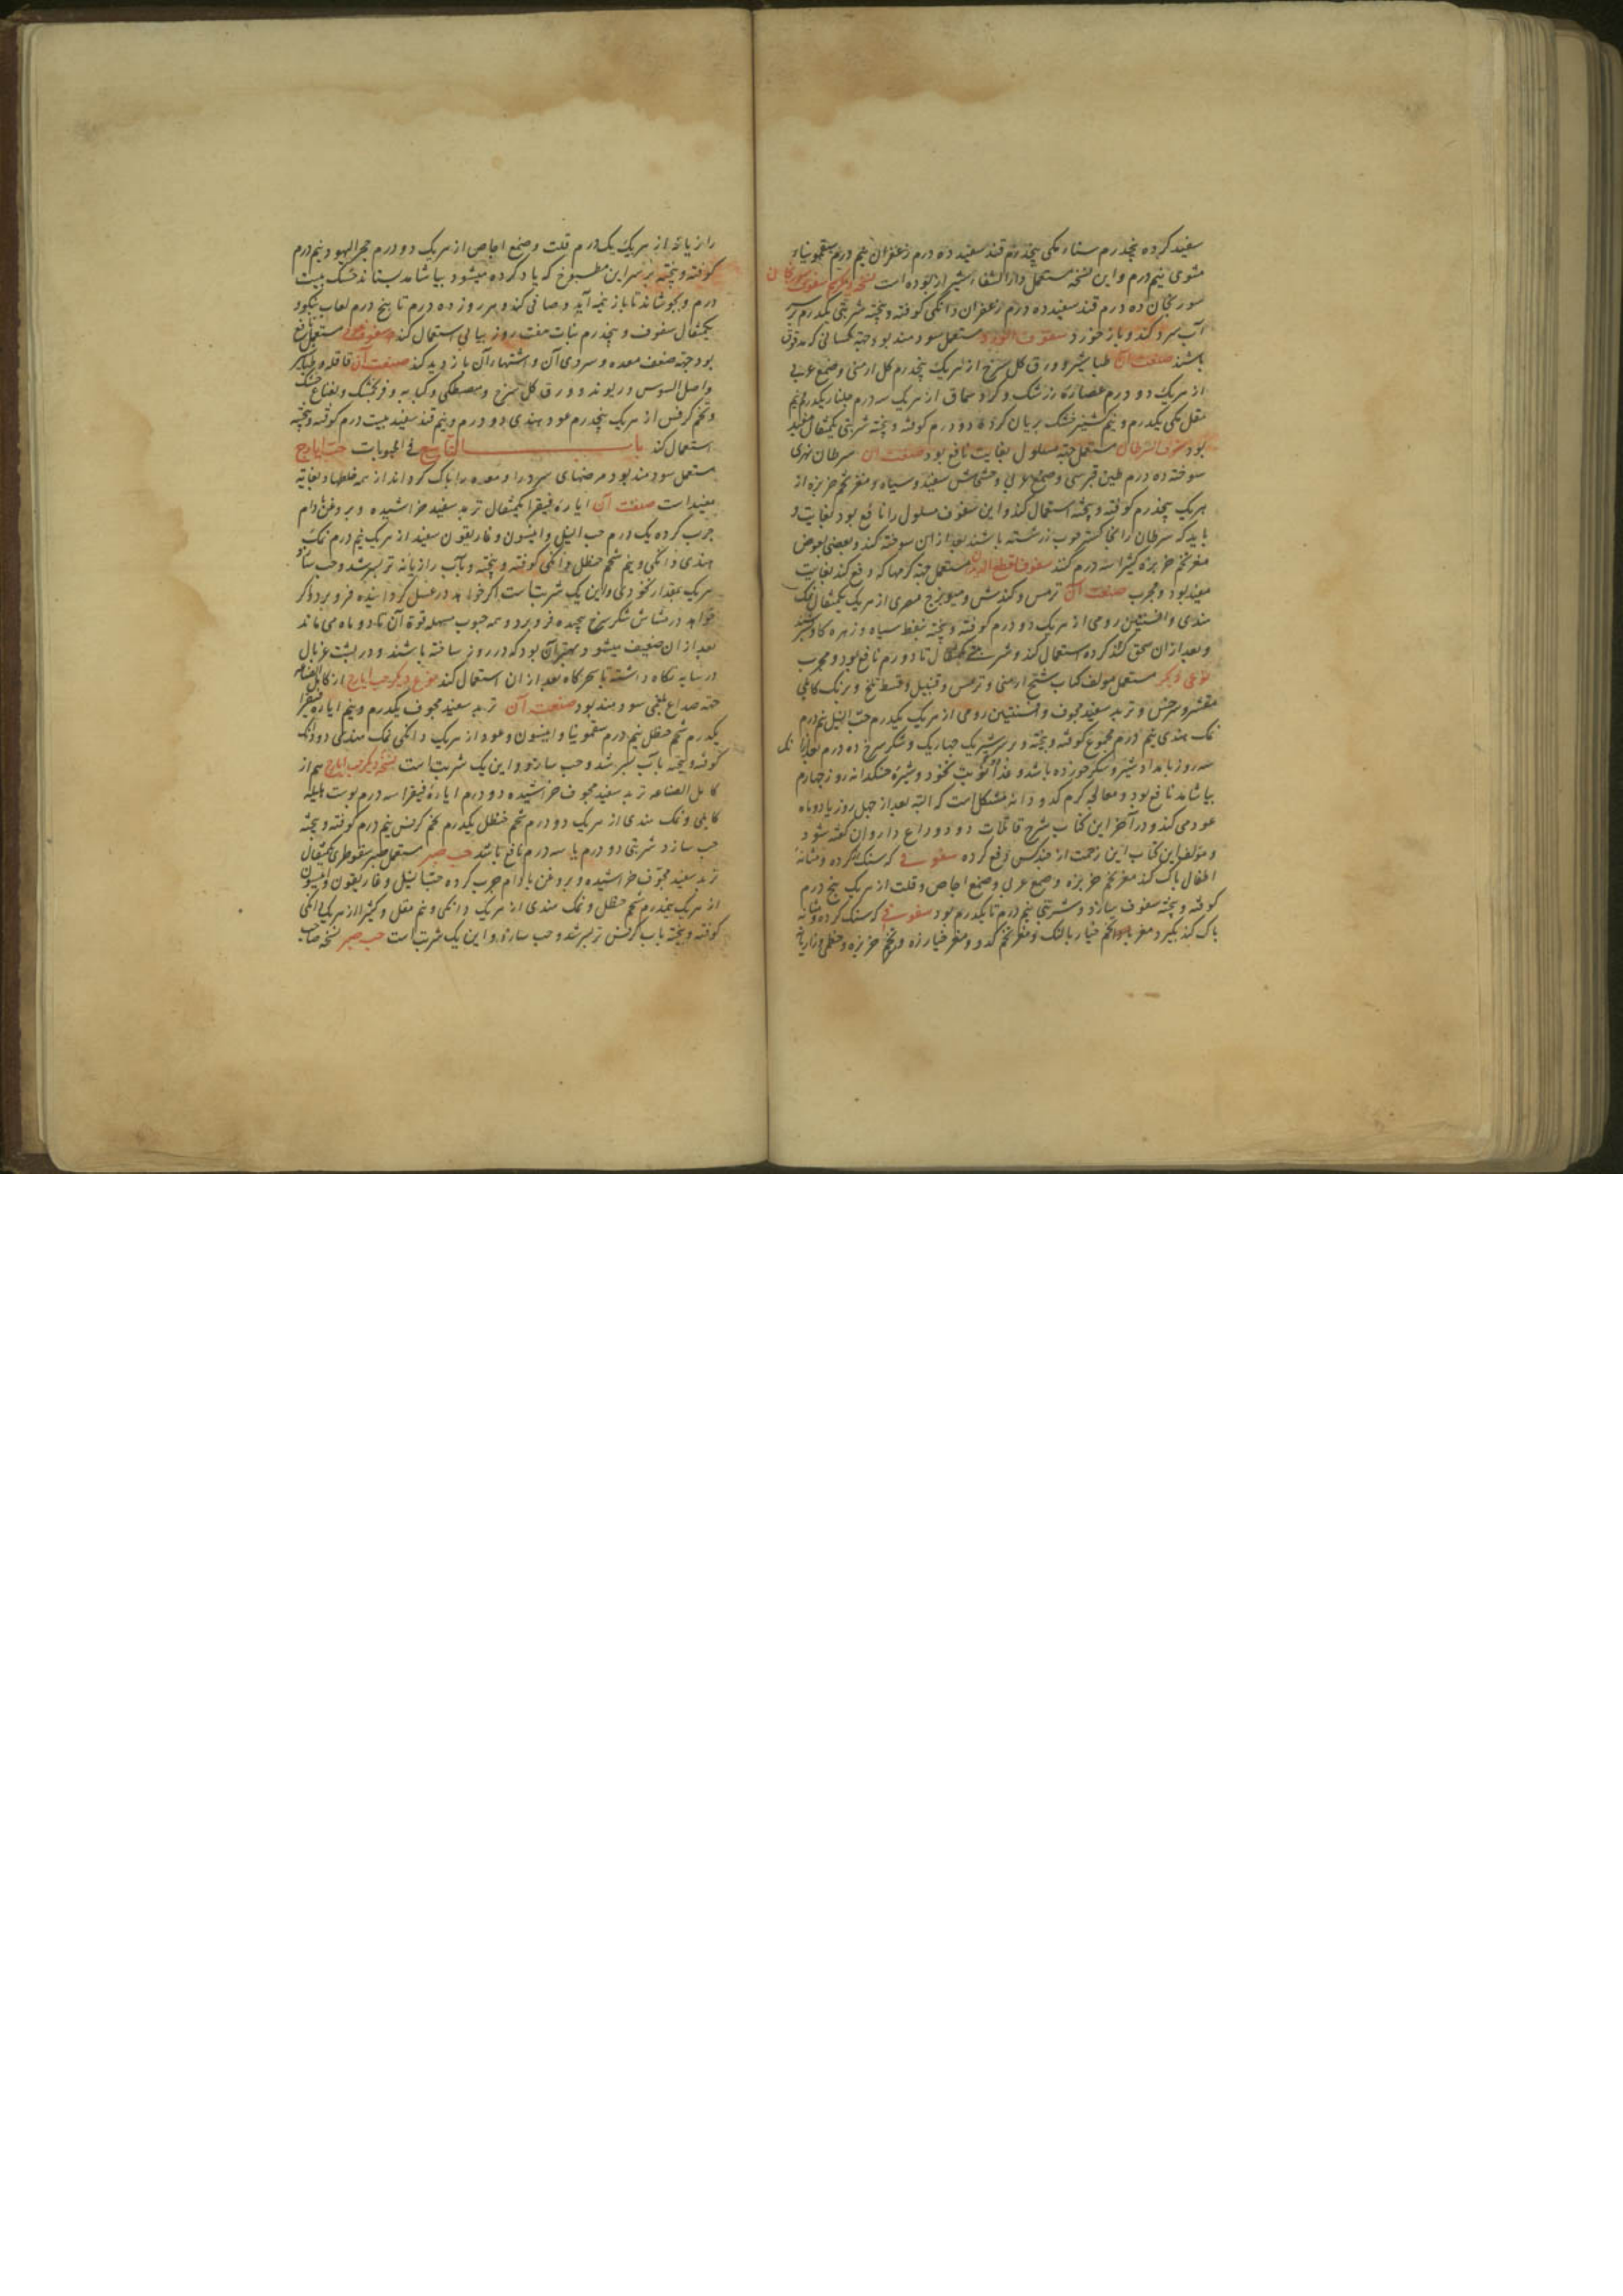 سفید کرده پنجدرم سناء مکی پنجدرم قند سفید ده درم زعفران نیم درم سقمونیاء
مشوی نیم درم و این نسخه مستعمل دارالشفاء شیراز بوده است نسخه دیکر سفوف سورنجان
سورنجان ده درم قند سفید ده درم زعفران دانکی کوفته و پخته شربتی یکدرم بر سر
آب سرد کند و باز خورد سفوف الورد مستعمل سودمند بود جهة کسانی که مدقوق
باشند صنعت آن طباشیر و ورق کل سرخ از هریک پنجدرم کل ارمنی و صمغ عربی
از هریک دو درم عصاره زرشک و کرد سماق از هریک سه درم جلنار یکدرم نیم
مقل مکی یکدرم و نیم کشنیز خشک بریان کرده دو درم کوفته و پخته شربتی یکمثقال مفید
بود سفوف السرطان مستعمل جهة مسلول بغایت نافع بود صنعت آن سرطان نهری
سوخته ده درم طین قبرسی و صمغ عربی و خشخاش سفید و سیاه و مغز تخم خربزه از
هریک پنجدرم کوفته و پخته استعمال کند و این سفوف مسلول را نافع بود بغایت و
باید که سرطان را بخاکستر خوب زر شسته باشند بعد از ان سوخته کند و بعضی بعوض
مغز تخم خربزه کثیرا سه درم کنند سفوف قطع الدیدان مستعمل جهة کرمها که دفع کند بغایت
مفید بود و مجرب صنعت آن ترمس و کندش و میویزج مصری از هریک یکمثقال نمک
هندی و افسنتین رومی از هریک دو درم کوفته و پخته بنفط سیاه و زهره کاو
و بعد از ان سحق کند کرده استعمال کند و شربتی یکمثقال تا دو درم نافع بود و مجرب
نوعی دیکر مستعمل مولف کتاب شیح ارمنی و ترمس و قنبیل و قسط تلخ و برنک کابلی
مقشر و سرخس و تربد سفید مجوف و افسنتین رومی از هریک یکدرم حب النیل نیم درم
نمک هندی نیم درم مجموع کوفته و پخته و بر سر شیر یک چهاریک و شکر سرخ ده درم
سه روز بامداد شیر و شکر خورده باشد و غذا نخود و شیره خسکدانه روز چهارم
بیاشامد نافع بود و معالجه کرم کدو دانه مشکل است که البته بعد از چهل روز یا دو ماه
عود می کند و در آخر این کتاب شرح قاتلات دود و وداع داروان کفته شود
و مولف این کتاب این زحمت از چند کس دفع کرده سفوفی که سنک کرده و مثانه
اطفال پاک کند مغز تخم خربزه و صمغ عربی و صمغ اجاص و قلت از هریک پنج درم
کوفته و پخته سفوف سازد و شربتی نیم درم تا یکدرم بود سفوفی که سنک کرده و مثانه
پاک کند بکیرد مغز تخم خیار بالنک و مغز تخم کدو و مغز خیارزه و تخم خربزه و
رازیانه از هریک یک درم قلت و صمغ اجاص از هریک دو درم حجر الیهود نیم درم
کوفته و پخته بر سر این مطبوخ که یاد کرده میشود بیاشامد بستاند خسک بیست
درم و بجوشاند تا باز نیمه آید و صافی کند و هر روز ده درم تا پنج درم لعاب
یکمثقال سفوف و پنجدرم نبات هفت روز پیاپی استعمال کند سفوفی مستعمل نافع
بود جهة ضعف معده و سردی آن و اشتها آن بازدید کند صنعت آن قاقله و طباشیر
و اصل السوس و ریوند و ورق کل سرخ و مصطکی و کبابه و فرنجمشک و نعناع خشک
و تخم کرفس از هریک پنجدرم عود هندی دو درم و نیم قند سفید بیست درم کوفته و پخته
استعمال کند باب التاسع فی الحبوبات حب ایارج
مستعمل سودمند بود مرضهای سرد را و معده را پاک کرداند از همه خلطها و بغایة
مفید است صنعت آن ایاره فیقرا یکمثقال تربد سفید خراشیده و بروغن بادام
چرب کرده یک درم حب النیل و انیسون و غاریقون سفید از هریک نیم درم نمک
هندی دانکی و نیم شحم حنظل دانکی کوفته و پخته و بآب رازیانه تر بسرشد و حب سازد
هریک بمقدار نخودی و این یک شربتست اکر خواهد در عسل کردانیده فرو برد و اکر
خواهد در شکر سرخ پیچیده فرو برد و همه حبوب مسهله قوة آن تا دو ماه می ماند
بعد از ان ضعیف میشود و بهتر آن بود که در روز ساخته باشند و در پشت غربال
در سایه نکاه داشته تا سحرکاه بعد از ان استعمال کند نوع دیکر حب ایارج از کامل الصناعه
جهة صداع بلغمی سودمند بود صنعت آن تربد سفید مجوف یکدرم و نیم ایاره فیقرا
یکدرم شحم حنظل نیم درم سقمونیا و انیسون و عود از هریک دانکی نمک هندی دو دانک
کوفته و پخته بآب بسرشد و حب سازد و این یک شربتست نسخه دیکر حب ایارج هم از
کامل الصناعه تربد سفید مجوف خراشیده دو درم ایاره فیقرا سه درم پوست هلیله
کابلی و نمک هندی از هریک دو درم شحم حنظل یکدرم تخم کرفس نیم درم کوفته و پخته
حب سازد شربتی دو درم یا سه درم نافع باشد حب صبر مستعمل صبر سقوطری یکمثقال
تربد سفید مجوف خراشیده و بروغن بادام چرب کرده حب النیل و غاریقون و انیسون
از هریک نیم درم شحم حنظل و نمک هندی از هریک دانکی و نیم مقل و کثیرا از هریک دانکی
کوفته و پخته بآب کرفس تر بسرشد و حب سازد و این یک شربتست حب صبر نسخه صاحب